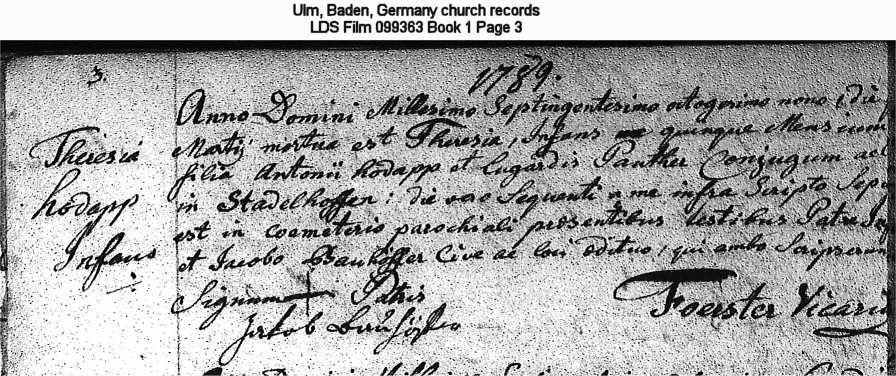 Ulm, Baden, Germany church records
LDS Film 099363 Book 1 Page 3
3.
1789.
Theresia
hodapp
Infans
Anno Domini Millesimo Septingentesimo octogesimo nono, die
Martij mortua est Theresia, Infans quinque Mensium
filia Antonii hodapp et Lugardis Panther Conjugum ac
in Stadelhoffen: die vero Sequenti a me infra Scripto Sep
est in coemeterio parochiali presentibus testibus Patre
et Jacobo Bauhöffer Cive ac loci ædituo, qui ambo Scripserunt
Signum + Patris
Jakob Bauhöffer
Foerster Vicari